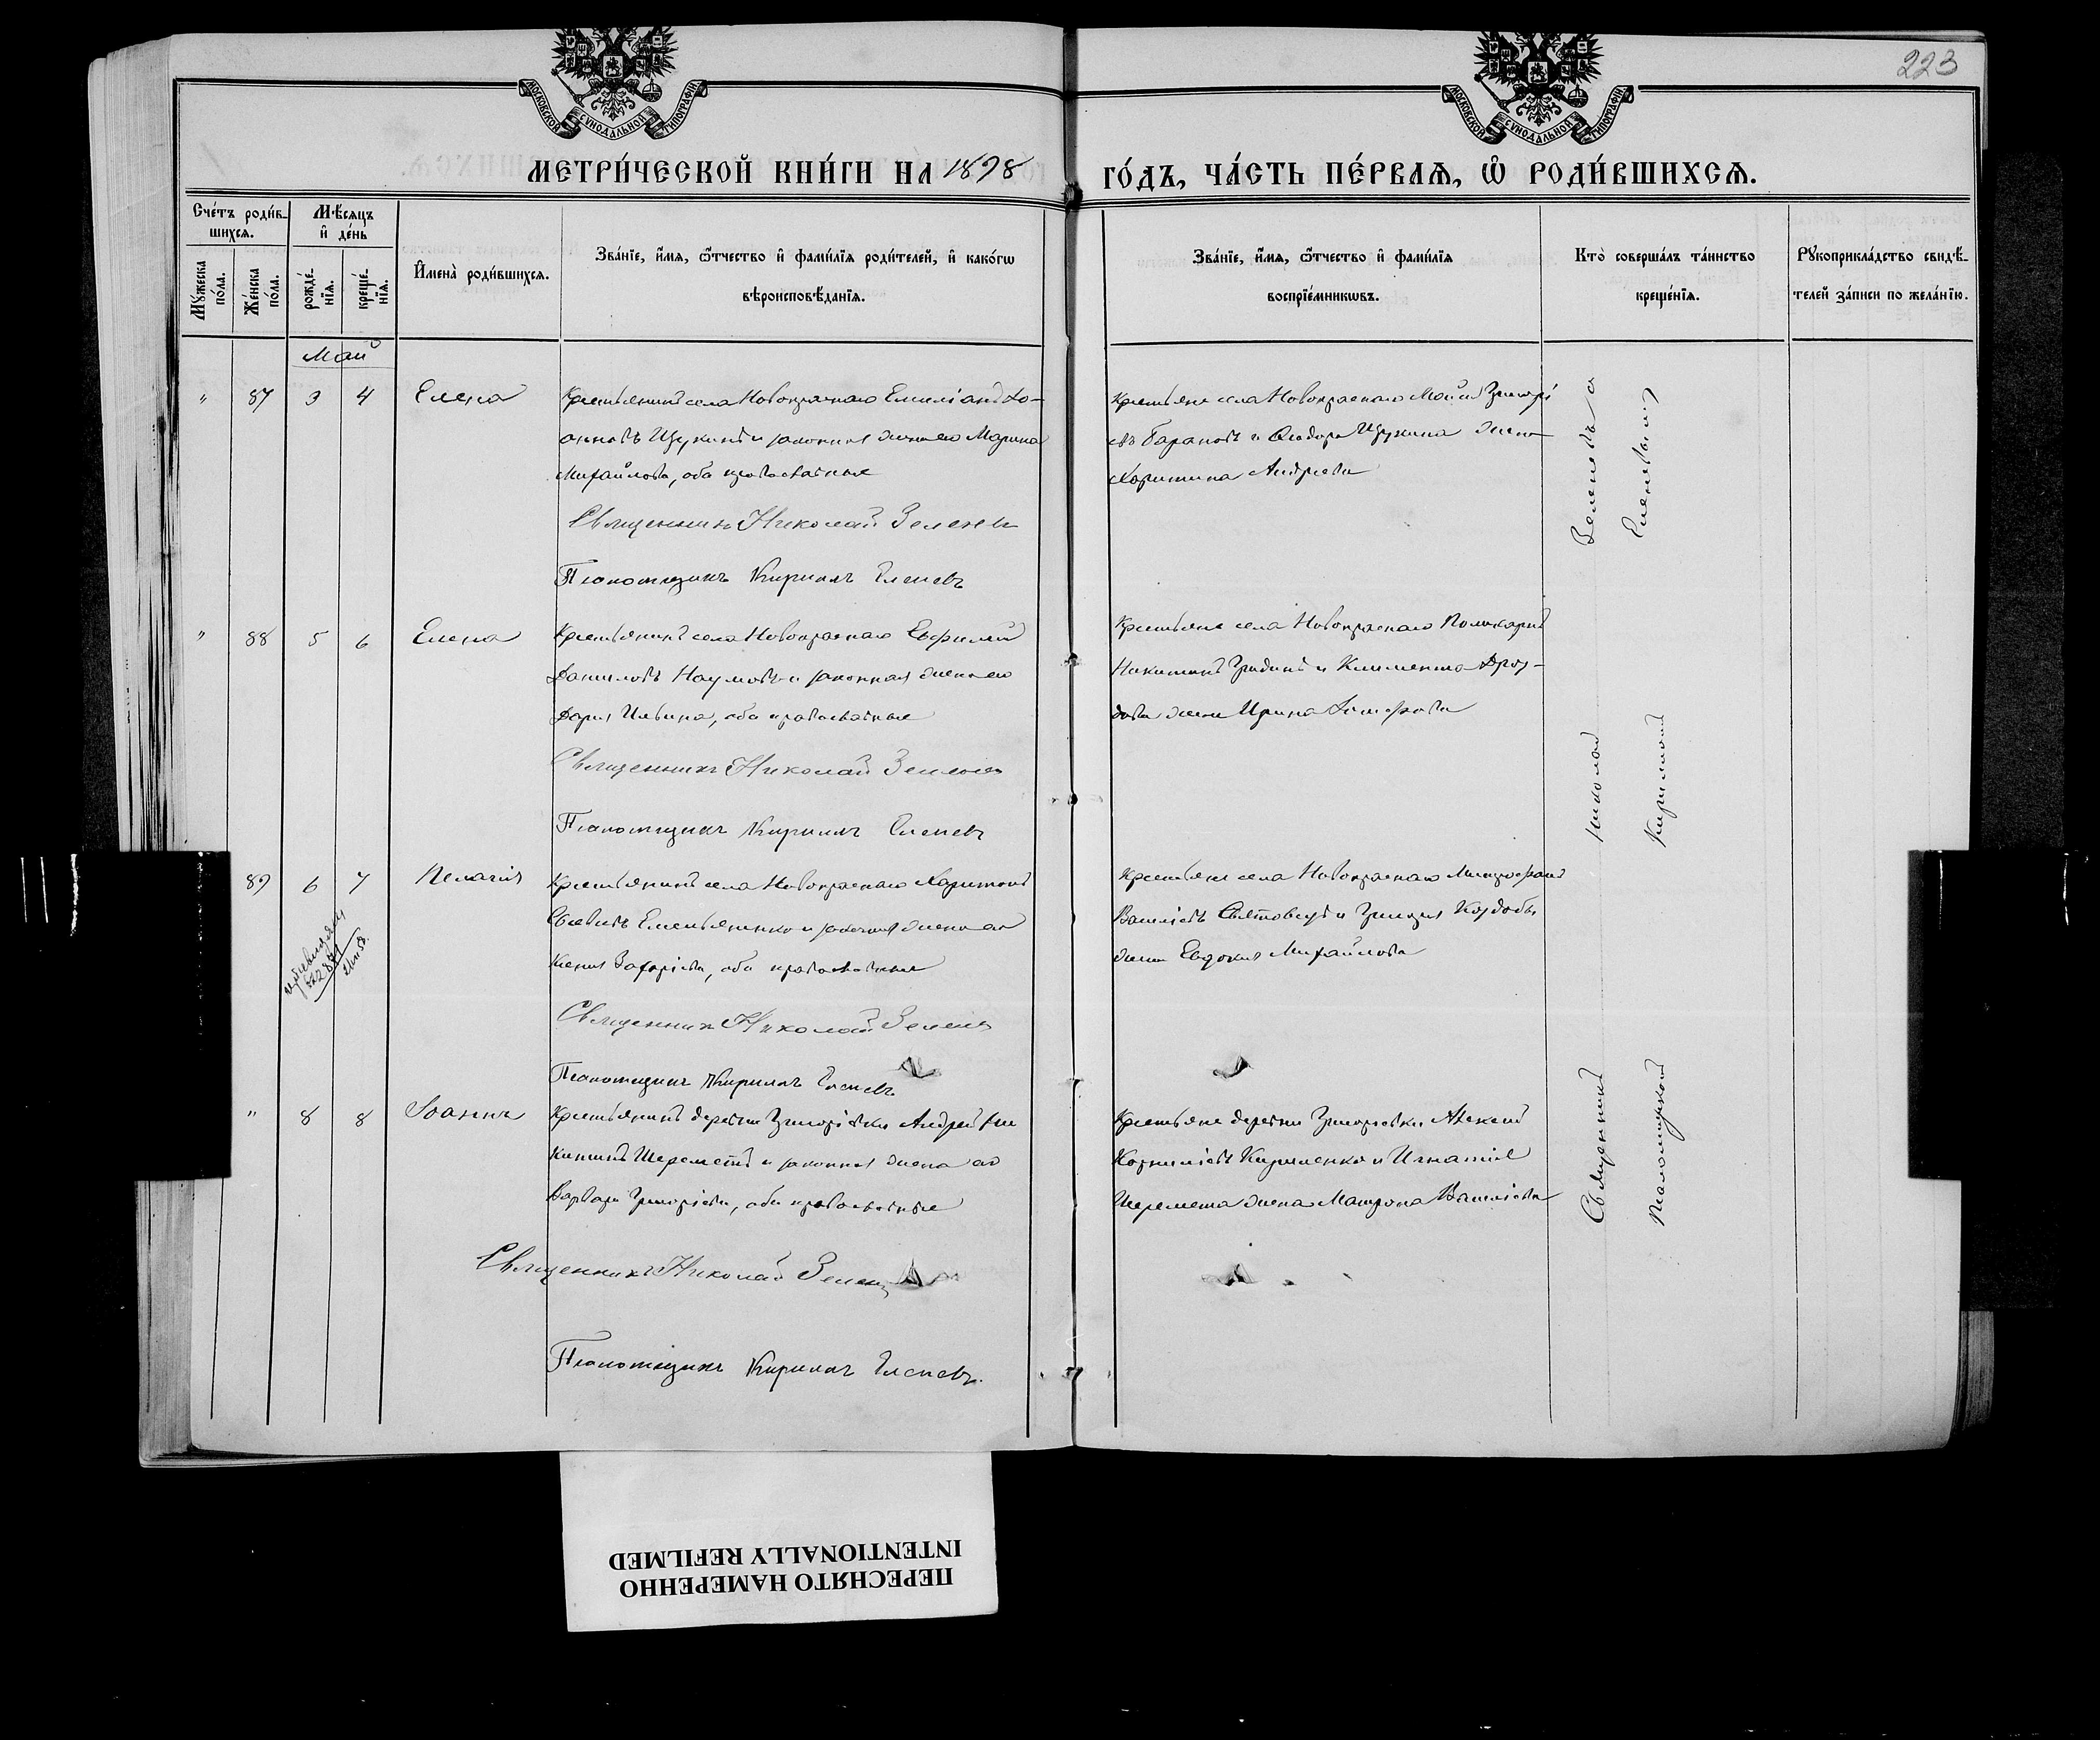 223
МОСКОВСКОЙ СѴНОДАЛЬНОЙ ТИПОГРАФІИ
МОСКОВСКОЙ СѴНОДАЛЬНОЙ ТИПОГРАФІИ
МЕТРИ́ЧЕСКОЙ КНИ́ГИ НА 1898 ГО́ДЪ, ЧА́СТЬ ПЕ́РВАѦ, Ѡ҆ РОДИ́ВШИХСѦ.
Сче́тъ роди́в-
шихсѧ.
Мѣ́сѧцъ
и҆ де́нь
Мꙋ́жеска по́ла.
Же́нска по́ла.
рожде́-
нїѧ.
креще́-
нїѧ.
И҆мена̀ роди́вшихсѧ.
Зва́нїе, и҆́мѧ, ѻ҆́тчество и҆ фами́лїѧ роди́телей, и҆ како́гѡ
вѣроисповѣ́данїѧ.
Зва́нїе, и҆́мѧ, ѻ҆́тчество и҆ фами́лїѧ
воспрїе́мникѡвъ.
Кто̀ соверша́лъ та́инство
креще́нїѧ.
Рꙋкоприкла́дство свидѣ́-
телей за́писи по жела́нїю.
Май
" 87 3 4 Елена
Крестьянинъ села Новокраснаго Емиліанъ Іо-
анновъ Щукинъ и законная жена его Марина
Михайлова, оба православные
Священникъ Николай Зеленевъ
Псаломщикъ Кириллъ Еленевъ
Крестьяне села Новокраснаго Моисей Григорі
евъ Барановъ и Ѳеодора Щукина жена
Харитина Андреева
" 88 5 6 Елена
Крестьянинъ села Новокраснаго Евфимій
Даниловъ Наумовъ и законная жена его
Дарія Ильина, оба православные
Священникъ Николай Зеленевъ
Псаломщикъ Кириллъ Еленевъ
Крестьяне села Новокраснаго Поликарпъ
Никитинъ Гридинъ и Климента Дроз-
дова жена Ирина
89 6 7 Пелагія
Крестьянинъ села Новокраснаго Харитонъ
Саввинъ Емельяненко и законная жена его
Ксенія Захаріева, оба православные
Священникъ Николай Зеленевъ
Псаломщикъ Кириллъ Еленевъ
Крестьяне села Новокраснаго Митрофанъ
Василіевъ и Григорія Коздобы
жена Евдокія Михайлова
" 8 8 Іоаннъ
Крестьянинъ деревни Григоріевки Андрей Ни
китинъ Шереметъ и законная жена его
Варвара Григоріева, оба православные
Священникъ Николай Зеленевъ
Псаломщикъ Кириллъ Еленевъ.
Крестьяне деревни Григоріевки Алексей
Корниліевъ Кириленко и Игнатія
Шеремета жена Матрона Василіева
Священникъ Николай Зеленевъ съ
Псаломщикомъ Кирилломъ Еленевымъ
ПЕРЕСНЯТО НАМЕРЕННО
INTENTIONALLY REFILMED